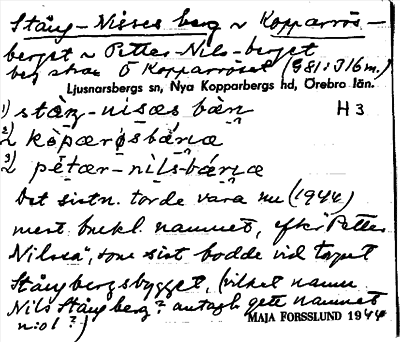 Stång-Nisses berg ~ Kopparrös-
berget ~ Petter-Nils-berget
berg strax Ö Kopparröset (G81:J16m.)
Ljusnarsbergs sn, Nya Kopparbergs hd, Örebro län.
1) stàŋ-nisæs bær̀ H3
2) ~ kòpærøsbærıæ
3) ~ pètær-nils-bærıæ
Det sistn. torde vara nu (1944)
mest brukl. namnet, efter "Petter
Nilssa", som sist bodde vid torpet
Stångbergsbygget, (vilket namn
Nils Stångberg? antagl. gett namnet
n:o 1?)
MAJA FORSSLUND 1944